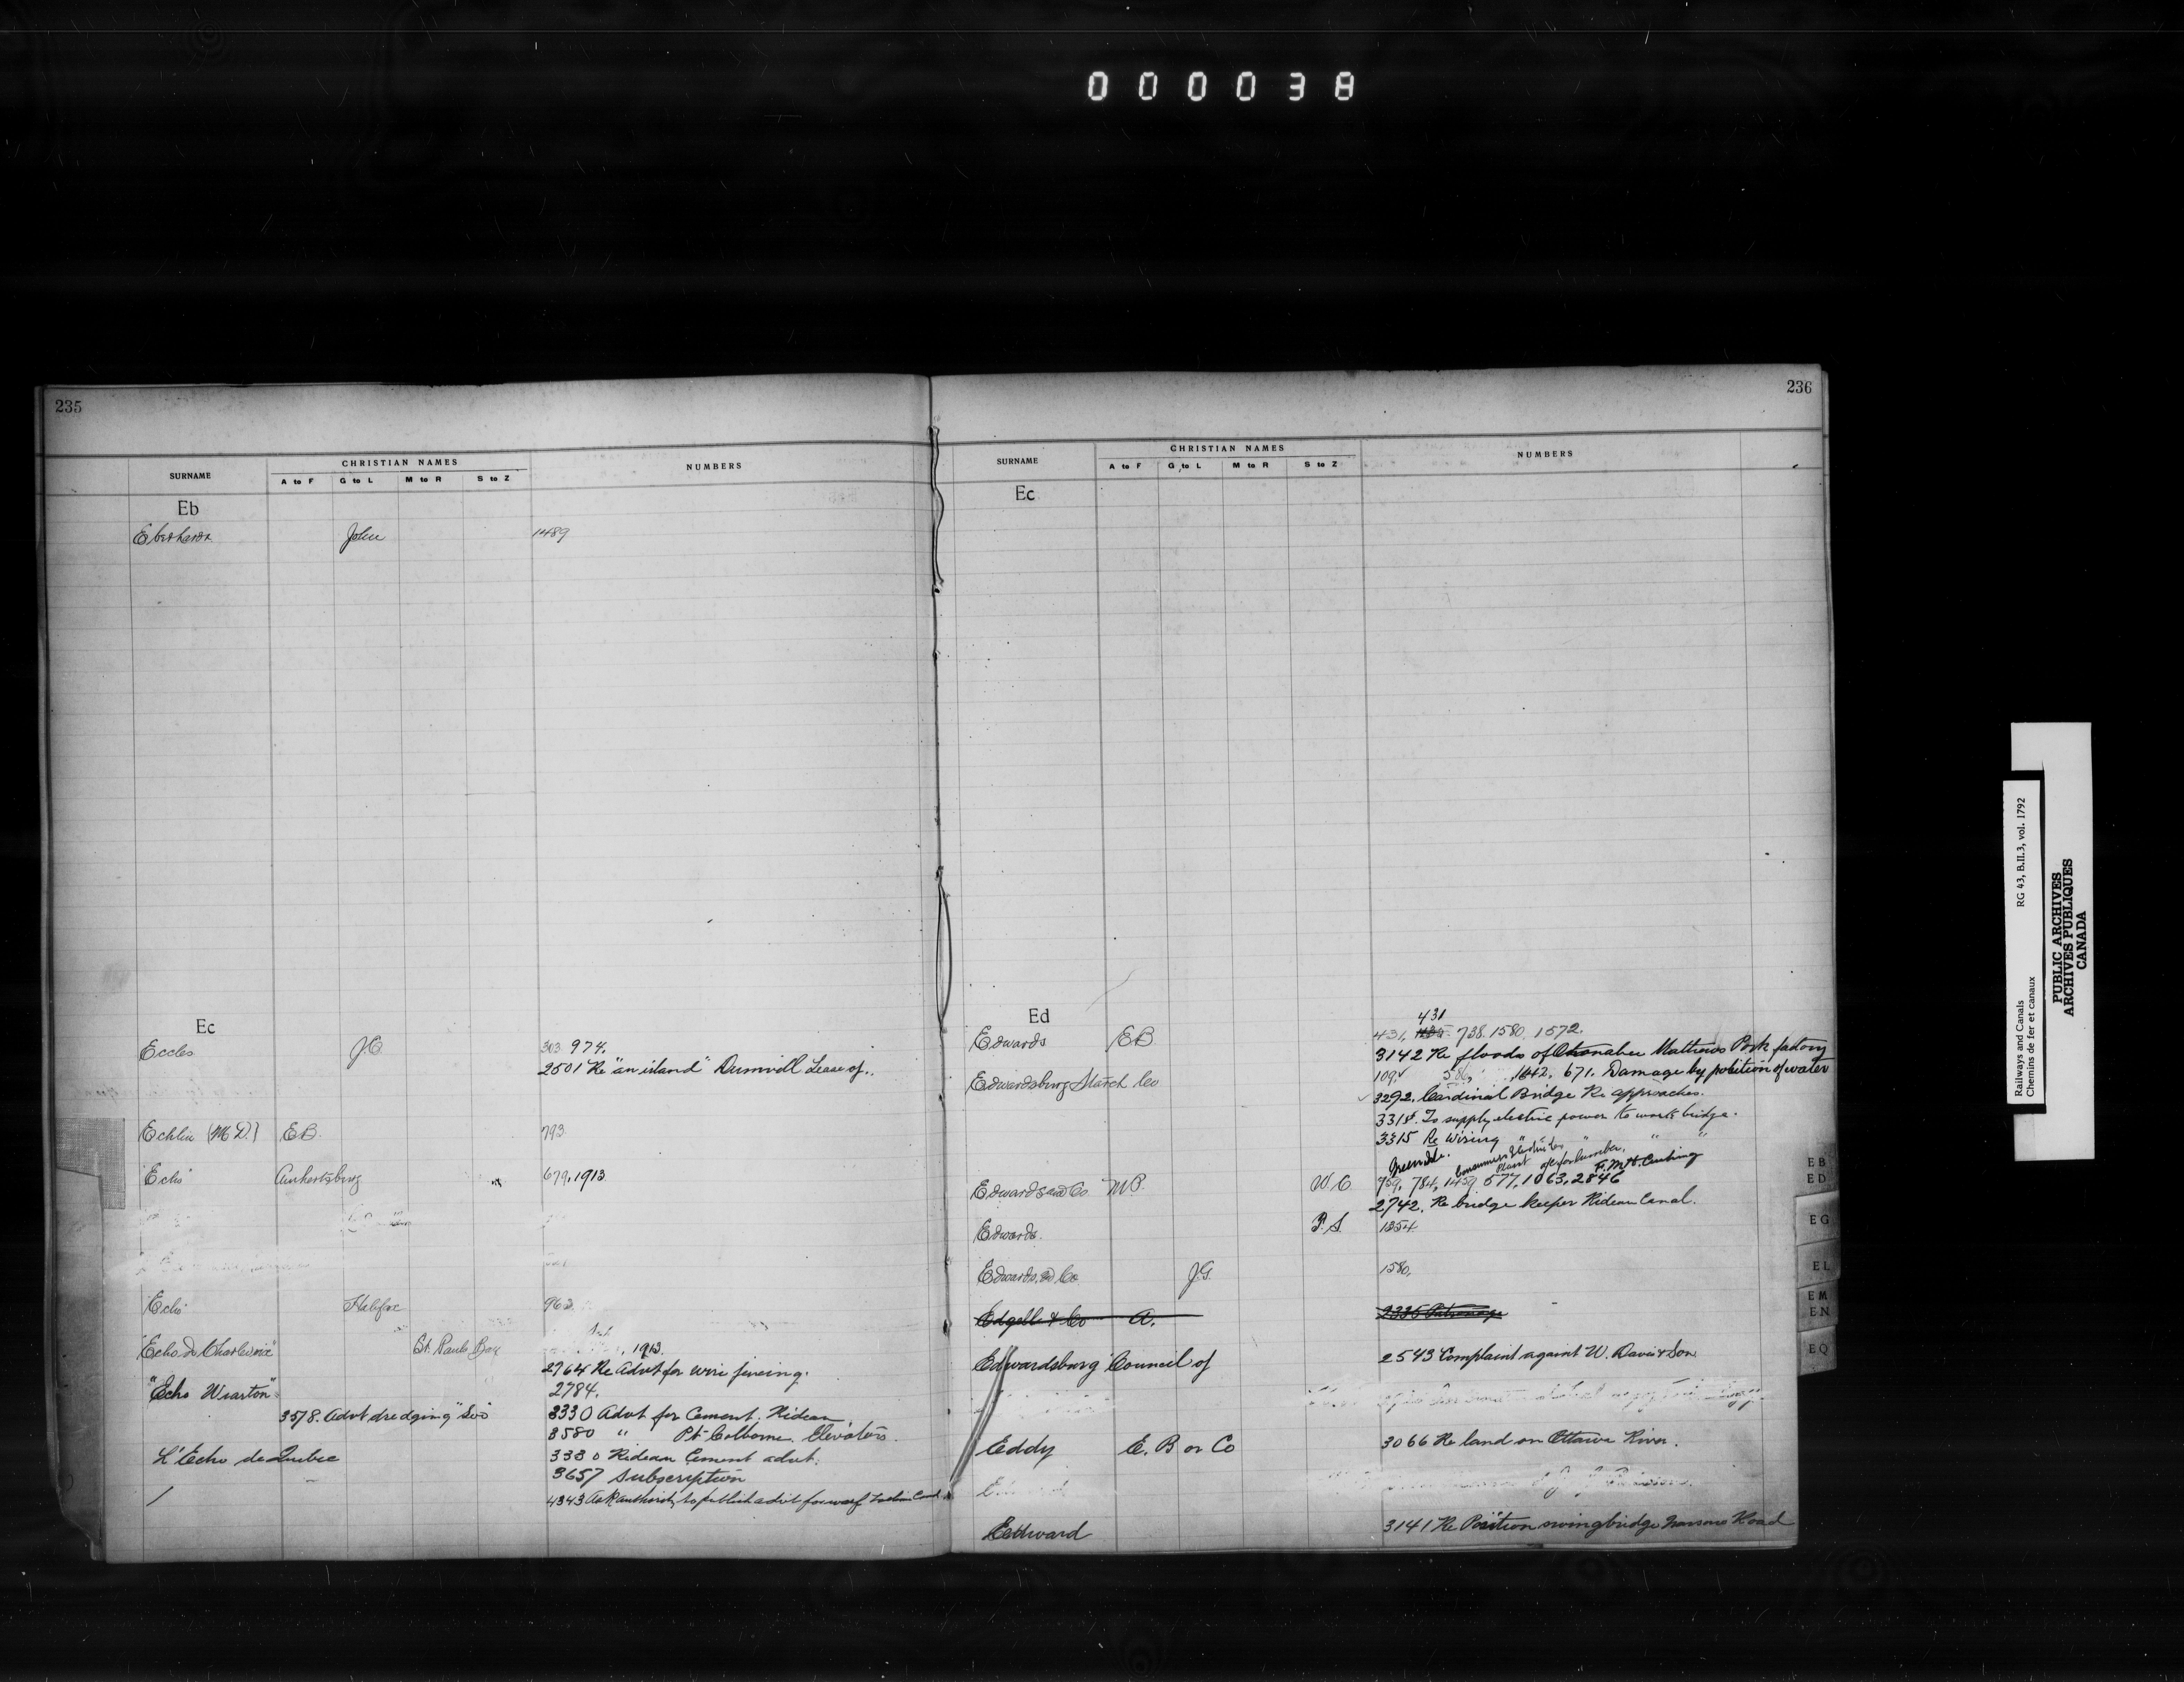 000038
235
SURNAME CHRISTIAN NAMES NUMBERS
A to F G to L M to R S to Z
Eb
Eberhardt John 1489
Ec
Eccles J.C. 303 974.
2501 Re "an island" Dunnvill Lease of..
Echlin (M.D.) E.B. 793
"Echo" Amherstburg 679, 1913
"Echo" Halifax 962
"Echo de Charlevoix" St. Pauls Bay 1913.
2764 Re Advt for wire fencing.
"Echo Wiarton" 2784.
3578. Advt dredging "Soo" 3330 Advt for Cement. Rideau.
3580 " Pt Colborne. Elevators.
L'Echo de Quebec 3330 Rideau Cement advt.
3657 Subscription
4343 Ask authority to publish advt for
236
SURNAME CHRISTIAN NAMES NUMBERS
A to F G to L M to R S to Z
Ec
Ed
431
Edwards E.B. 431, 738. 1580, 1572.
3142 Re floods of Otonabee Mathews Pork factory
Edwardsburg Starch Co 109. 586, 1142, 671. Damage by position of water
3292. Cardinal Bridge Re approaches.
3314. To supply electric power to work bridge.
3315 Re Wiring " " " "
Greendale. Consumers Electric Plant F.M.H. Cushing
Edwards and Co M.P. W.C. 759, 784, 1459, 577, 1063, 2846
2742. Re bridge keeper Rideau Canal.
Edwards. P.S. 1254
Edwards, and Co J.G. 1580.
Edgell & Co A. 2335 Patronage
Edwardsburg Council of 2543 Complaint against W. Davis & Son
Eddy E. B or Co 3066 Re land on Ottawa River.
Edward 3141 Re Position swing bridge Road
EB
ED
EG
EL
EM
EN
EQ
Railways and Canals RG 43, B.II.3, vol. 1792
Chemins de fer et canaux
PUBLIC ARCHIVES
ARCHIVES PUBLIQUES
CANADA